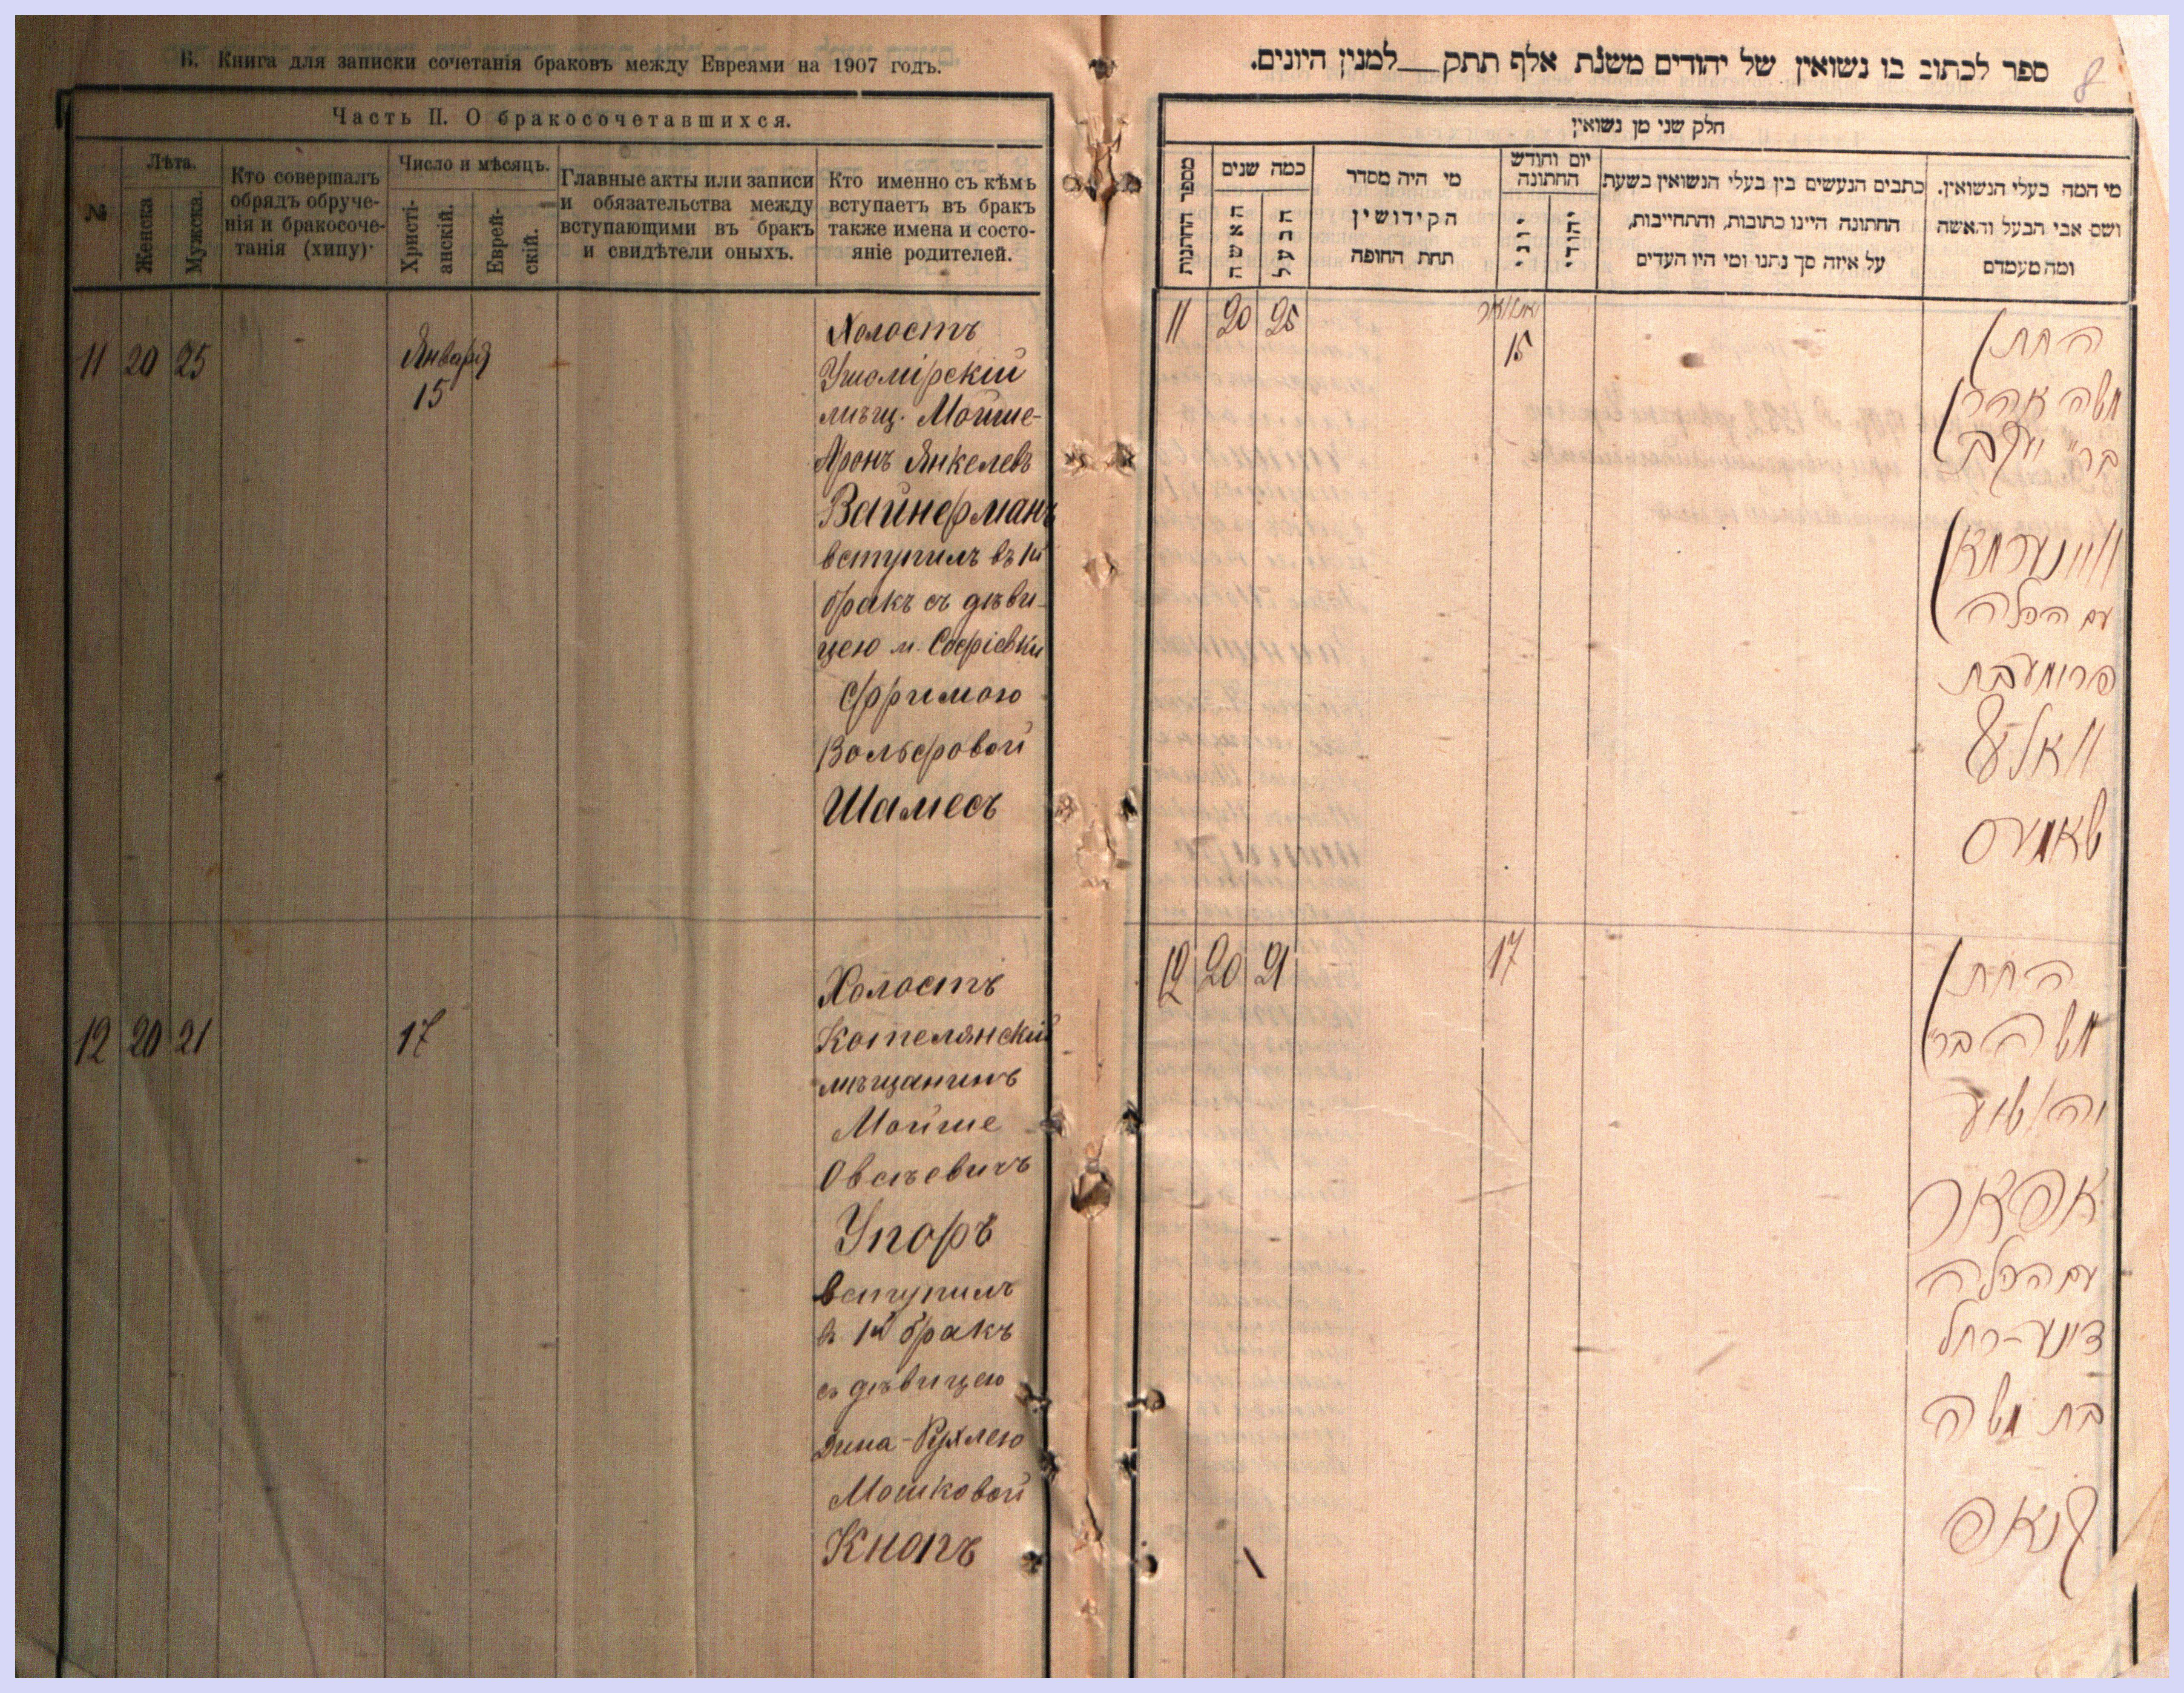 В. Книга для записки сочетанія браковъ между Евреями на 1907 годъ.
Часть II. О бракосочетавшихся.
№
Лѣта.
Женска
Мужска.
Кто совершалъ
обрядъ обруче-
нія и бракосоче-
танія (хипу)
Число и мѣсяцъ.
Христі-
анскій.
Еврей-
скій.
Главные акты или записи
и обязательства между
вступающими въ бракъ
и свидѣтели оныхъ.
Кто именно съ кѣмъ
вступаетъ въ бракъ
также имена и состо-
яніе родителей.
11 20 25
Января
15
Холостъ
Ушомірскій
мѣщ. Мойше-
Аронъ Янкелевъ
Вайнерманъ
вступилъ въ 1й
бракъ съ дѣви-
цею м. Софіевки
Фримою
Вольфовой
Шамесъ
12 20 21
17
Холостъ
Котелянскій
мѣщанинъ
Мойше
Овсѣевичъ
Упоръ
вступилъ
въ 1й бракъ
съ дѣвицею
Дина-Рухлею
Мошковой
Кнопъ
ספר לכתוב בו נשואין של יהודים משנת אלף תתק__למנין היונים.
8
חלק שני מן נשואין
מספר החתונות
כמה שנים
האשה
הבעל
מי היה מסדר
הקידושין
תחת החופה
יום וחודש
החתונה
יווני
יהודי
כתבים הנעשים בין בעלי הנשואין בשעת
החתונה היינו כתובות, והתחייבות,
על איזה סך נתנו ומי היו העדים
מי המה בעלי הנשואין.
ושם אבי הבעל והאשה
ומה מעמדם
11 20 25
יאנואר
15
החתן
משה אהרן
בר׳ יעקב
וויינערמאן
עם הכלה
פרומע בת
וואלף
שאמעס
12 20 21
17
החתן
משה בר׳
יהושוע
אפאר
עם הכלה
דינע-רחל
בת משה
קנאפ